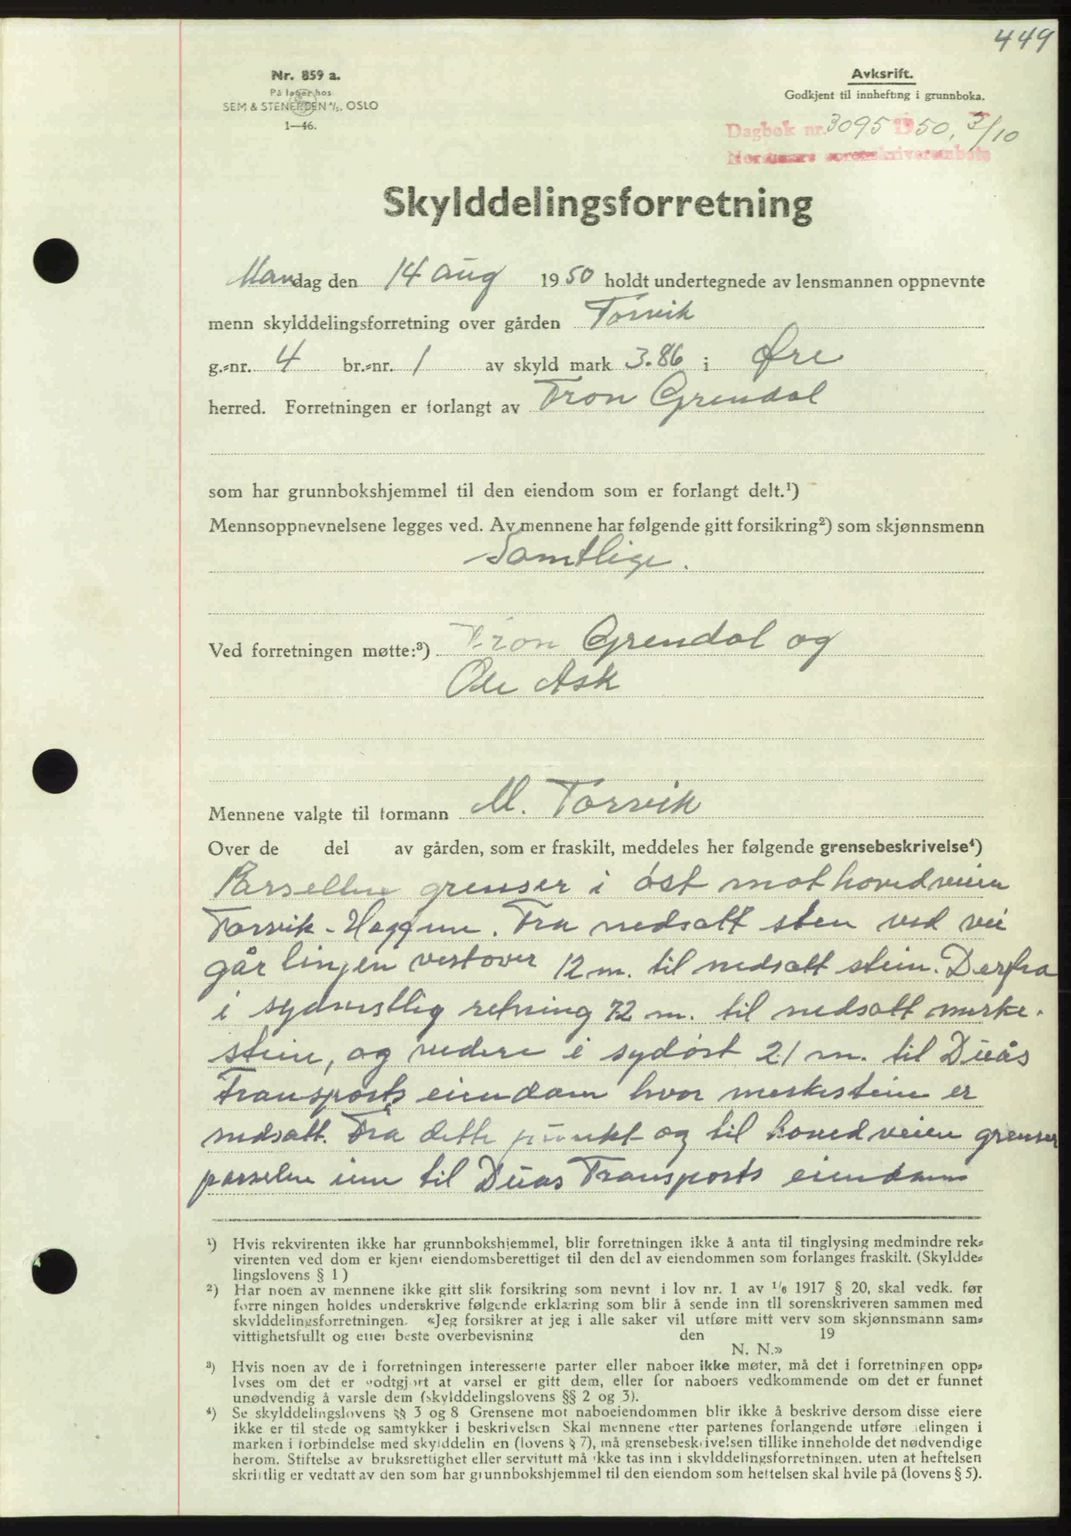 449
Nr. 859 a.
På lager hos
SEM & STENERSEN A/S, OSLO
1—46.
Avskrift.
Godkjent til innhefting i grunnboka.
Dagbok nr. 3095 1950, 3/10
Nordmøre sorenskriverembete
Skylddelingsforretning
Mandag den 14 aug 1950 holdt undertegnede av lensmannen oppnevnte
menn skylddelingsforretning over gården Torvik
g.-nr. 4 br.-nr. 1 av skyld mark 3.86 i Øre
herred. Forretningen er forlangt av Tron Grendal
som har grunnbokshjemmel til den eiendom som er forlangt delt.¹)
Mennsoppnevnelsene legges ved. Av mennene har følgende gitt forsikring²) som skjønnsmenn
Samtlige.
Ved forretningen møtte:³) Tron Grendal og
Ole Ask
Mennene valgte til formann M. Torvik
Over de del av gården, som er fraskilt, meddeles her følgende grensebeskrivelse⁴)
Parsellen grenser i øst mot hovedveien
Torvik - Høgmo. Fra nedsatt sten ved vei
går linjen vestover 12 m. til nedsatt stein. Derfra
i sydvestlig retning 72 m. til nedsatt merke-
stein, og videre i sydøst 21 m. til Dúås
Transports eiendom hvor merkestein er
nedsatt. Fra dette punkt og til hovedveien grenser
parselen inn til Dúås Transports eiendom
¹) Hvis rekvirenten ikke har grunnbokshjemmel, blir forretningen ikke å anta til tinglysing medmindre rek-
virenten ved dom er kjent eiendomsberettiget til den del av eiendommen som forlanges fraskilt. (Skyldde-
lingslovens § 1)
²) Har noen av mennene ikke gitt slik forsikring som nevnt i lov nr. 1 av 1/6 1917 § 20, skal vedk. før
forretningen holdes underskrive følgende erklæring som blir å sende inn til sorenskriveren sammen med
skylddelingsforretningen. «Jeg forsikrer at jeg i alle saker vil utføre mitt verv som skjønnsmann sam-
vittighetsfullt og etter beste overbevisning den 19
N. N.»
³) Hvis noen av de i forretningen interesserte parter eller naboer ikke møter, må det i forretningen opp-
lyses om det er godtgjort at varsel er gitt dem, eller for naboers vedkommende om det er funnet
unødvendig å varsle dem (skylddelingslovens §§ 2 og 3).
⁴) Se skylddelingslovens §§ 3 og 8 Grensene mot naboeiendommen blir ikke å beskrive dersom disse eiere
ikke er til stede og samtykker i beskrivelsen Skal mennene etter partenes forlangende utføre delingen i
marken i forbindelse med skylddelingen (lovens § 7), må grensebeskrivelsen tillike inneholde det nødvendige
herom. Stiftelse av bruksrettighet eller servitutt må ikke tas inn i skylddelingsforretningen, uten at heftelsen
skriftlig er vedtatt av den som har grunnbokshjemmel til den eiendom som heftelsen skal hvile på (lovens § 5).